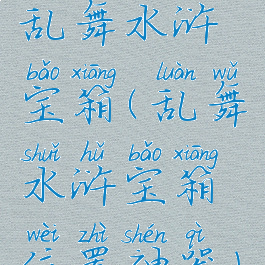 乱舞水浒
bǎo xiāng luàn wǔ
宝箱(乱舞
shuǐ hǔ bǎo xiāng
水浒宝箱
wèi zhì shén qì
位置神器)